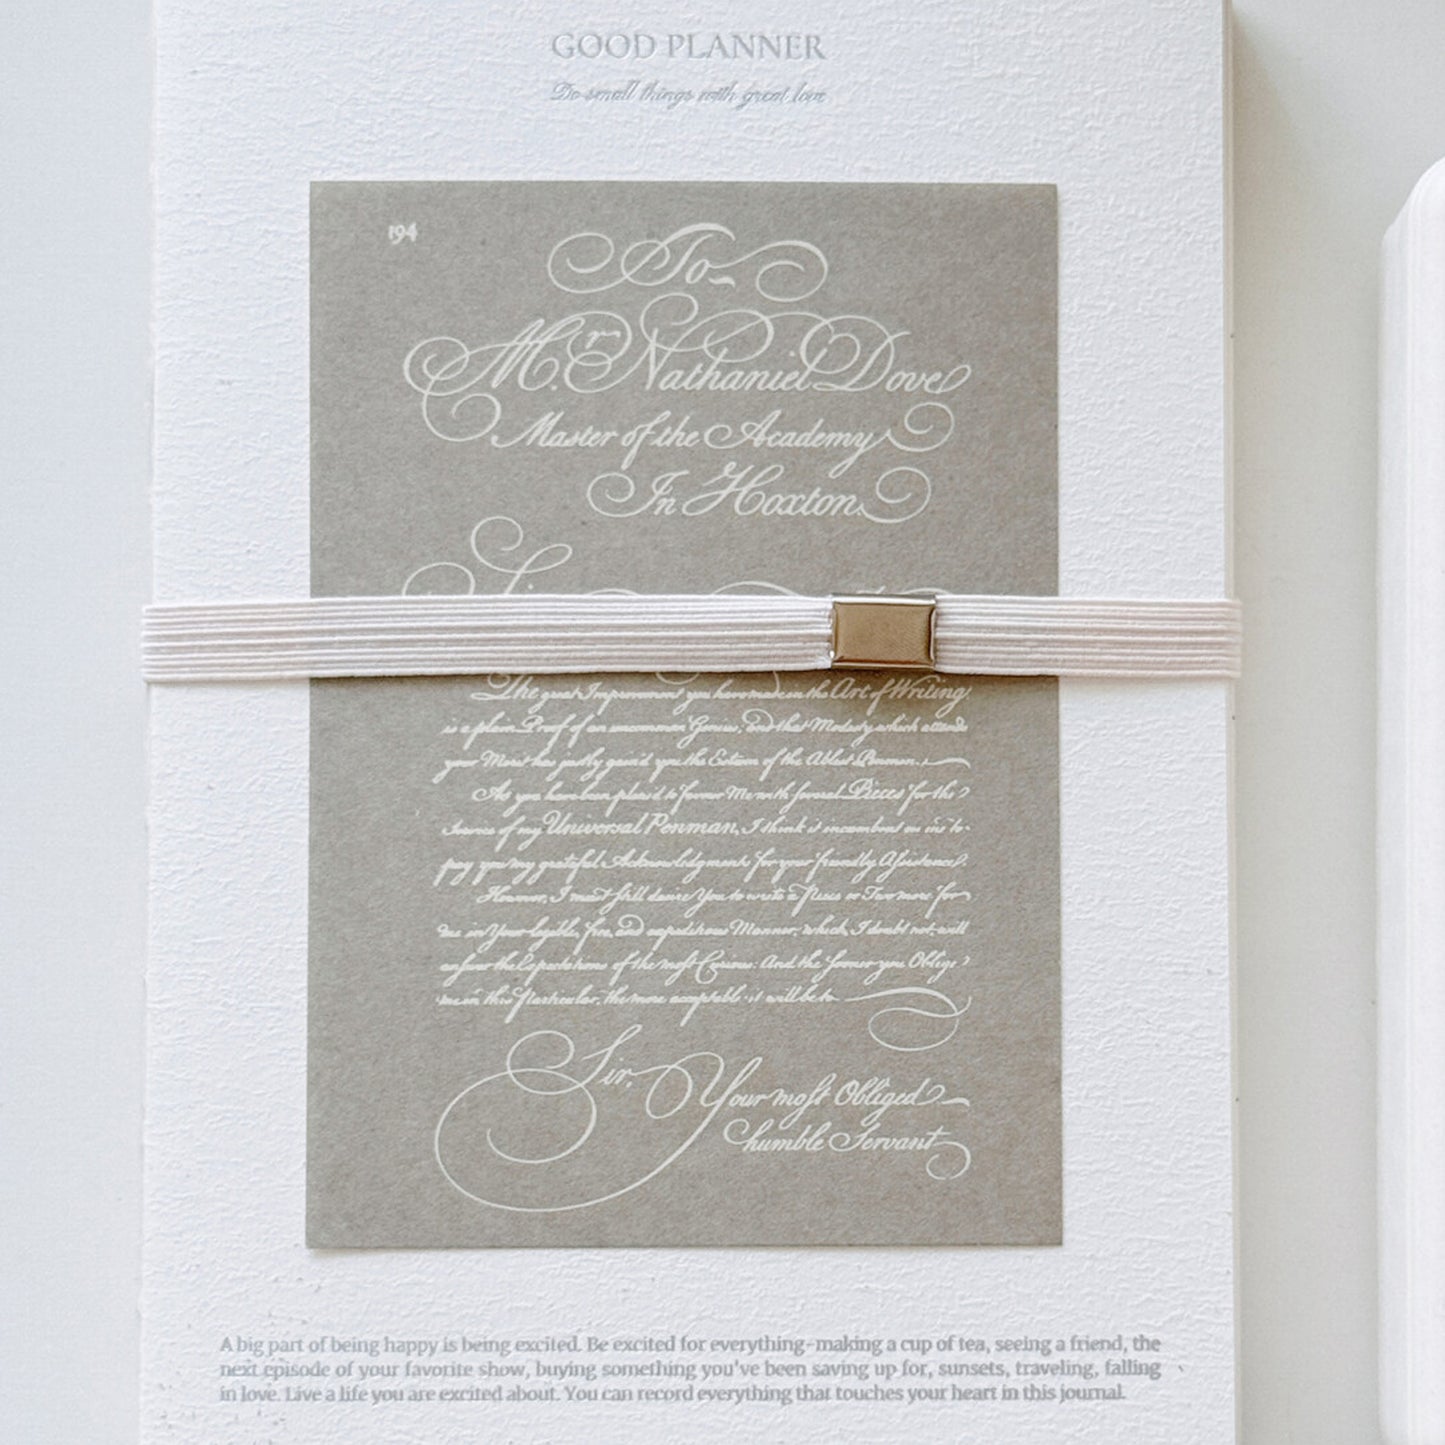 GOOD PLANNER
Do small things with great love
194
To
Mr. Nathaniel Dove
Master of the Academy
In Hoxton.
The great Improvement you have made in the Art of Writing
is a plain Proof of an uncommon Genius; and that Modesty which attends
your Merit has justly gain'd you the Esteem of the Ablest Penmen.
As you have been pleas'd to favour Me with several Pieces for the
of my Universal Penman, I think it incumbent on me to
pay you my grateful Acknowledgments for your friendly Assistance.
However, I must still desire You to write a Piece or Two more for
me in Your legible, free, and expeditious Manner, which, I doubt not, will
answer the Expectations of the most Curious: And the sooner you Oblige
me in this Particular, the more acceptable it will be to
Sir,
Your most Obliged
humble Servant
A big part of being happy is being excited. Be excited for everything-making a cup of tea, seeing a friend, the
next episode of your favorite show, buying something you've been saving up for, sunsets, traveling, falling
in love. Live a life you are excited about. You can record everything that touches your heart in this journal.